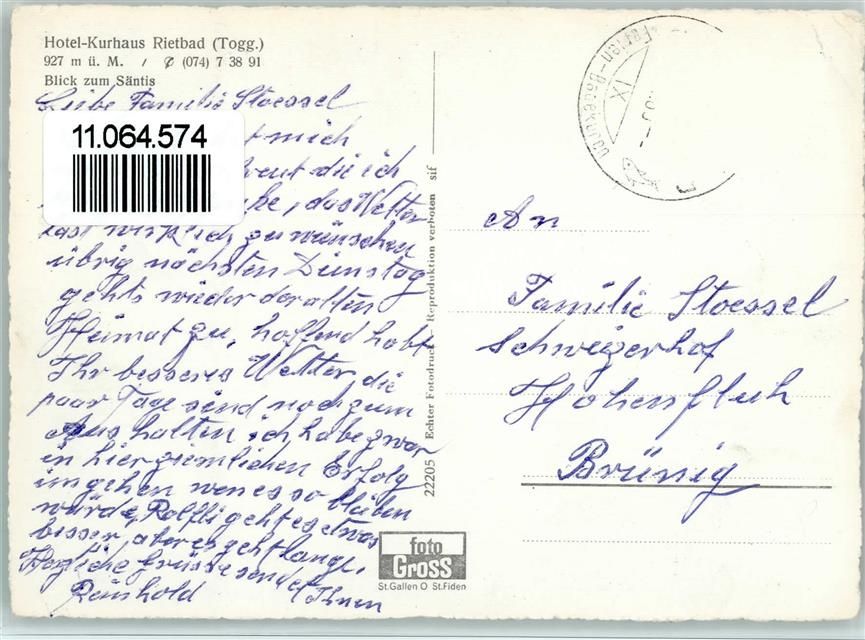 Hotel-Kurhaus Rietbad (Togg.)
927 m ü. M. / ✆ (074) 7 38 91
Blick zum Säntis
Liebe Familie Stoessel
11.064.574
mich
die ich
, das Wetter
last wirklich zu wünschen
übrig nächsten Dünstag
gehts wieder der alten
Heimat zu, hoffend habt
Ihr besseres Wetter, die
paar Tage sind noch zum
Aus halten, ich habe zwar
in hier ziemlichen Erfolg
im gehen wen es so bleiben
würde, Rolfli geht es etwas
besser, aber es geht lange.
Herzliche Grüsse sendet
Reinhold Ihnen
22205 Echter Fotodruck - Reproduktion verboten sif
foto
Gross
St.Gallen O St.Fiden
IX
An
Familie Stoessel
Schweizerhof
Hohenfluh
Brünig